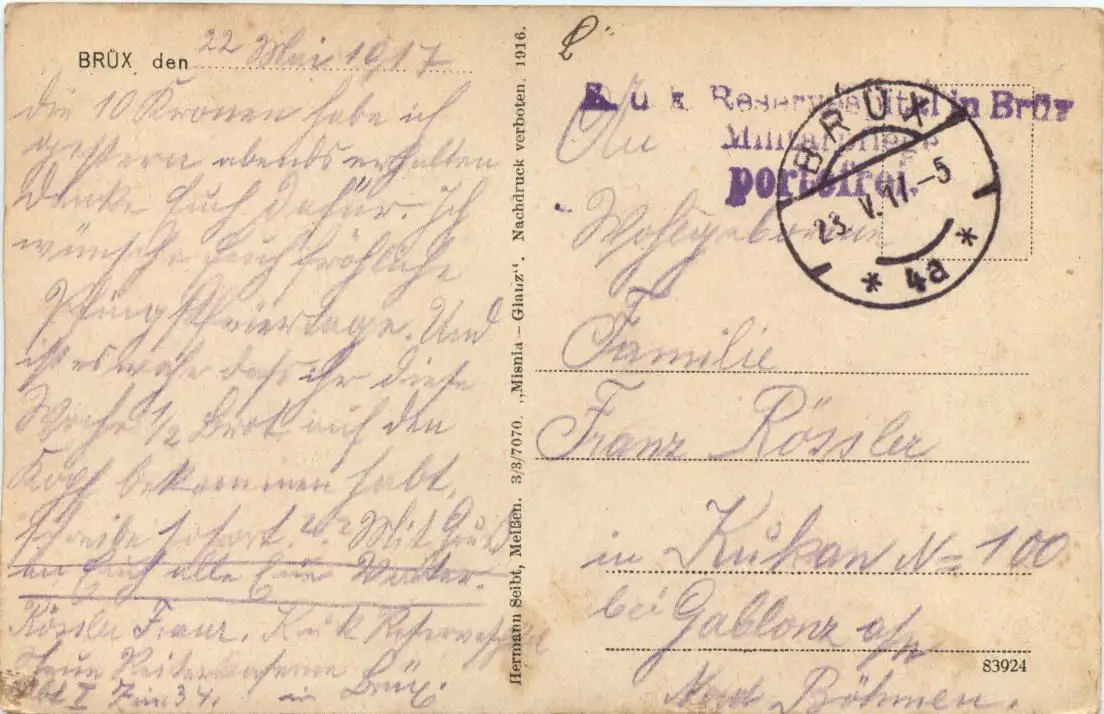 BRÜX, den 22 Mai 1917
Die 10 Kronen habe ich
gestern abends erhalten
Danke Euch dafür. Ich
wünsche Euch fröhliche
Pfingstfeiertage. Und
ist es wahr dass ihr diese
Woche 1/2 Brot auf den
Kopf bekommen habt,
schreibe sofort. Mit Gruß
an Euch alle Euer Vater.
Rössler Franz. K u k Reservespital
Neue Reiterkaserne
Abt I Zim 34. in Brüx.
Hermann Seibt, Meißen. 3/3/7070. „Misnia – Glauz“. Nachdruck verboten. 1916.
K. u. k. Reservespital in Brüx
Militärpflege
portofrei.
BRÜX
23. V. 17. –5
* 4a *
An
Wohlgeboren
Familie
Franz Rössler
in Kukan No 100
bei Gablonz a/n
Nord Böhmen.
83924